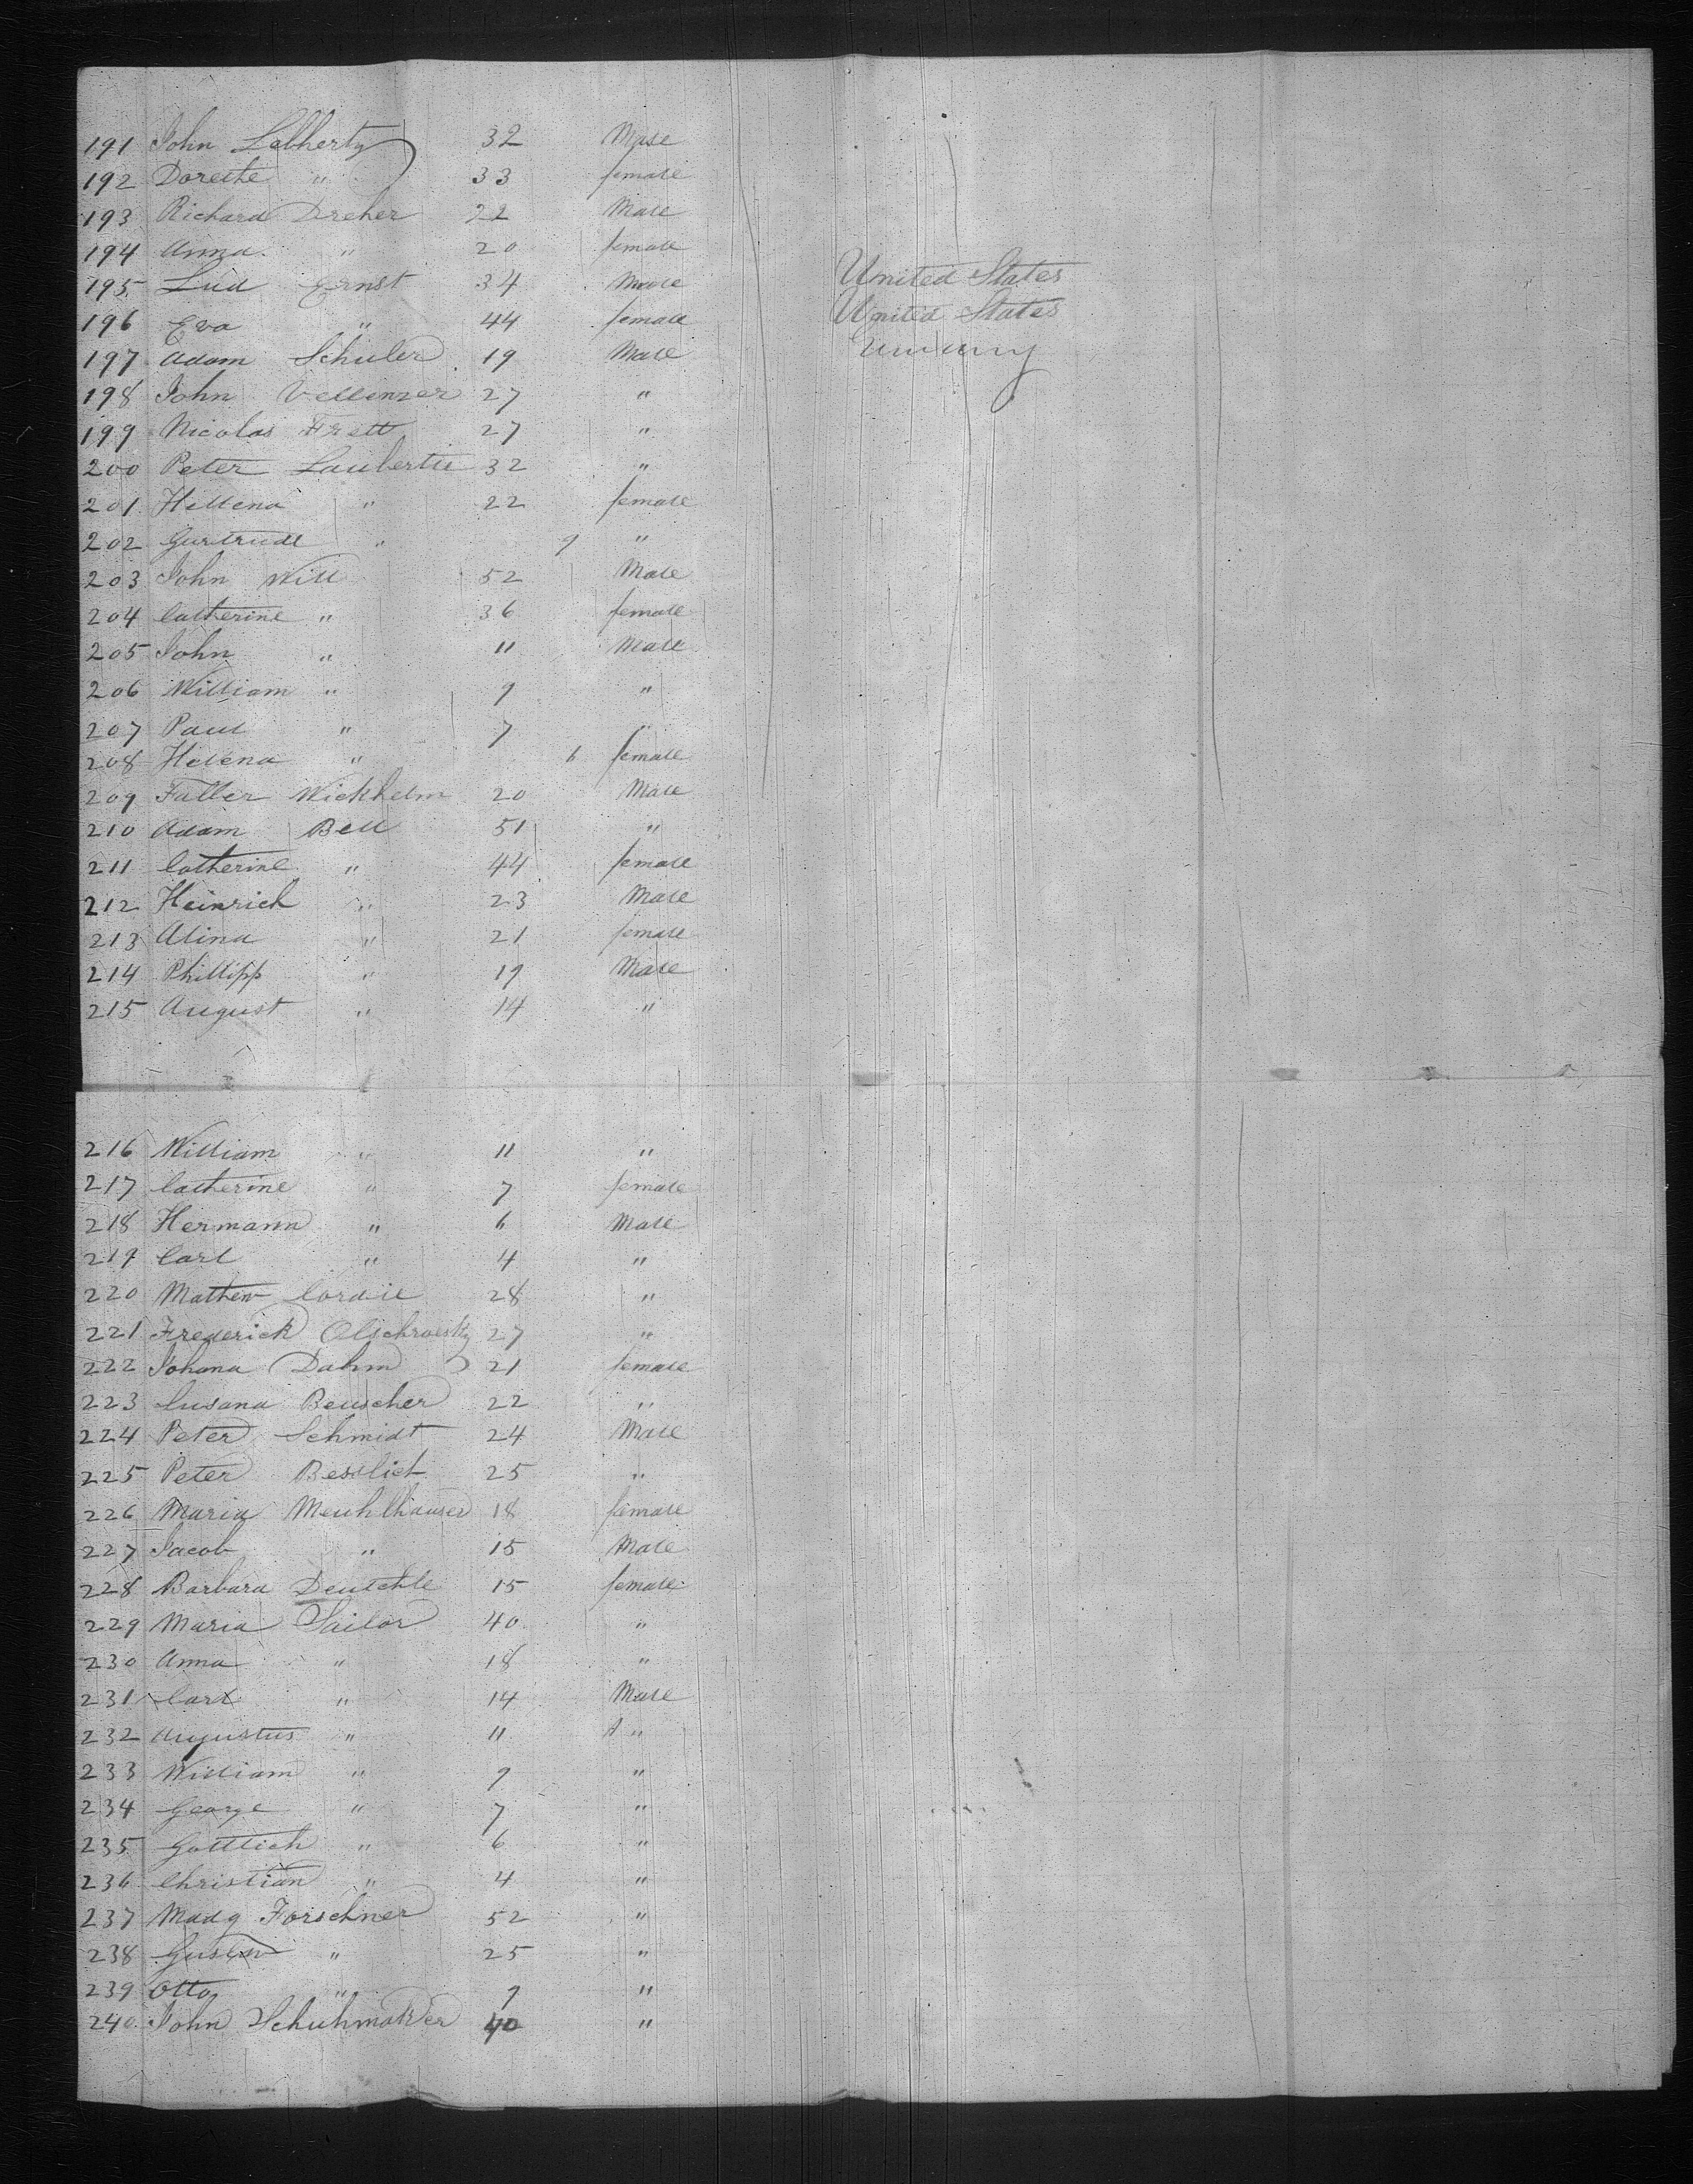 191 John Lebherty 32 Male
192 Dorethe " 33 female
193 Richard Dreher 22 Male
194 Anna " 20 female
195 Lud Ernst 34 Male United States
196 Eva " 44 female United States
197 Adam Schuler 19 Male
198 John Vellenzer 27 "
199 Nicolas Frett 27 "
200 Peter Laubertie 32 "
201 Hellena " 22 female
202 Gurtrude " 9 "
203 John Will 52 Male
204 Catherine " 36 female
205 John " 11 Male
206 William " 9 "
207 Paul " 7 "
208 Helena " 6 female
209 Faller Wickhelm 20 Male
210 Adam Bell 51 "
211 Catherine " 44 female
212 Heinrich " 23 Male
213 Alina " 21 female
214 Phillipp " 19 Male
215 August " 14 "
216 William " 11 "
217 Catherine " 7 female
218 Hermann " 6 Male
219 Carl " 4 "
220 Mathew Cordie 28 "
221 Frederick Olschroesky 27 "
222 Johana Dahm 21 female
223 Susana Beuscher 22 "
224 Peter Schmidt 24 Male
225 Peter Besslich 25 "
226 Maria Meuhlhauser 18 female
227 Jacob " 15 Male
228 Barbara Deutchle 15 female
229 Maria Sailor 40 "
230 Anna " 18 "
231 Carl " 14 Male
232 Augustus " 11 "
233 William " 9 "
234 George " 7 "
235 Gottlieh " 6 "
236 Christian " 4 "
237 Madg Forschner 52 "
238 Gustav " 25 "
239 Otto " 9 "
240 John Schuhmaker 40 "